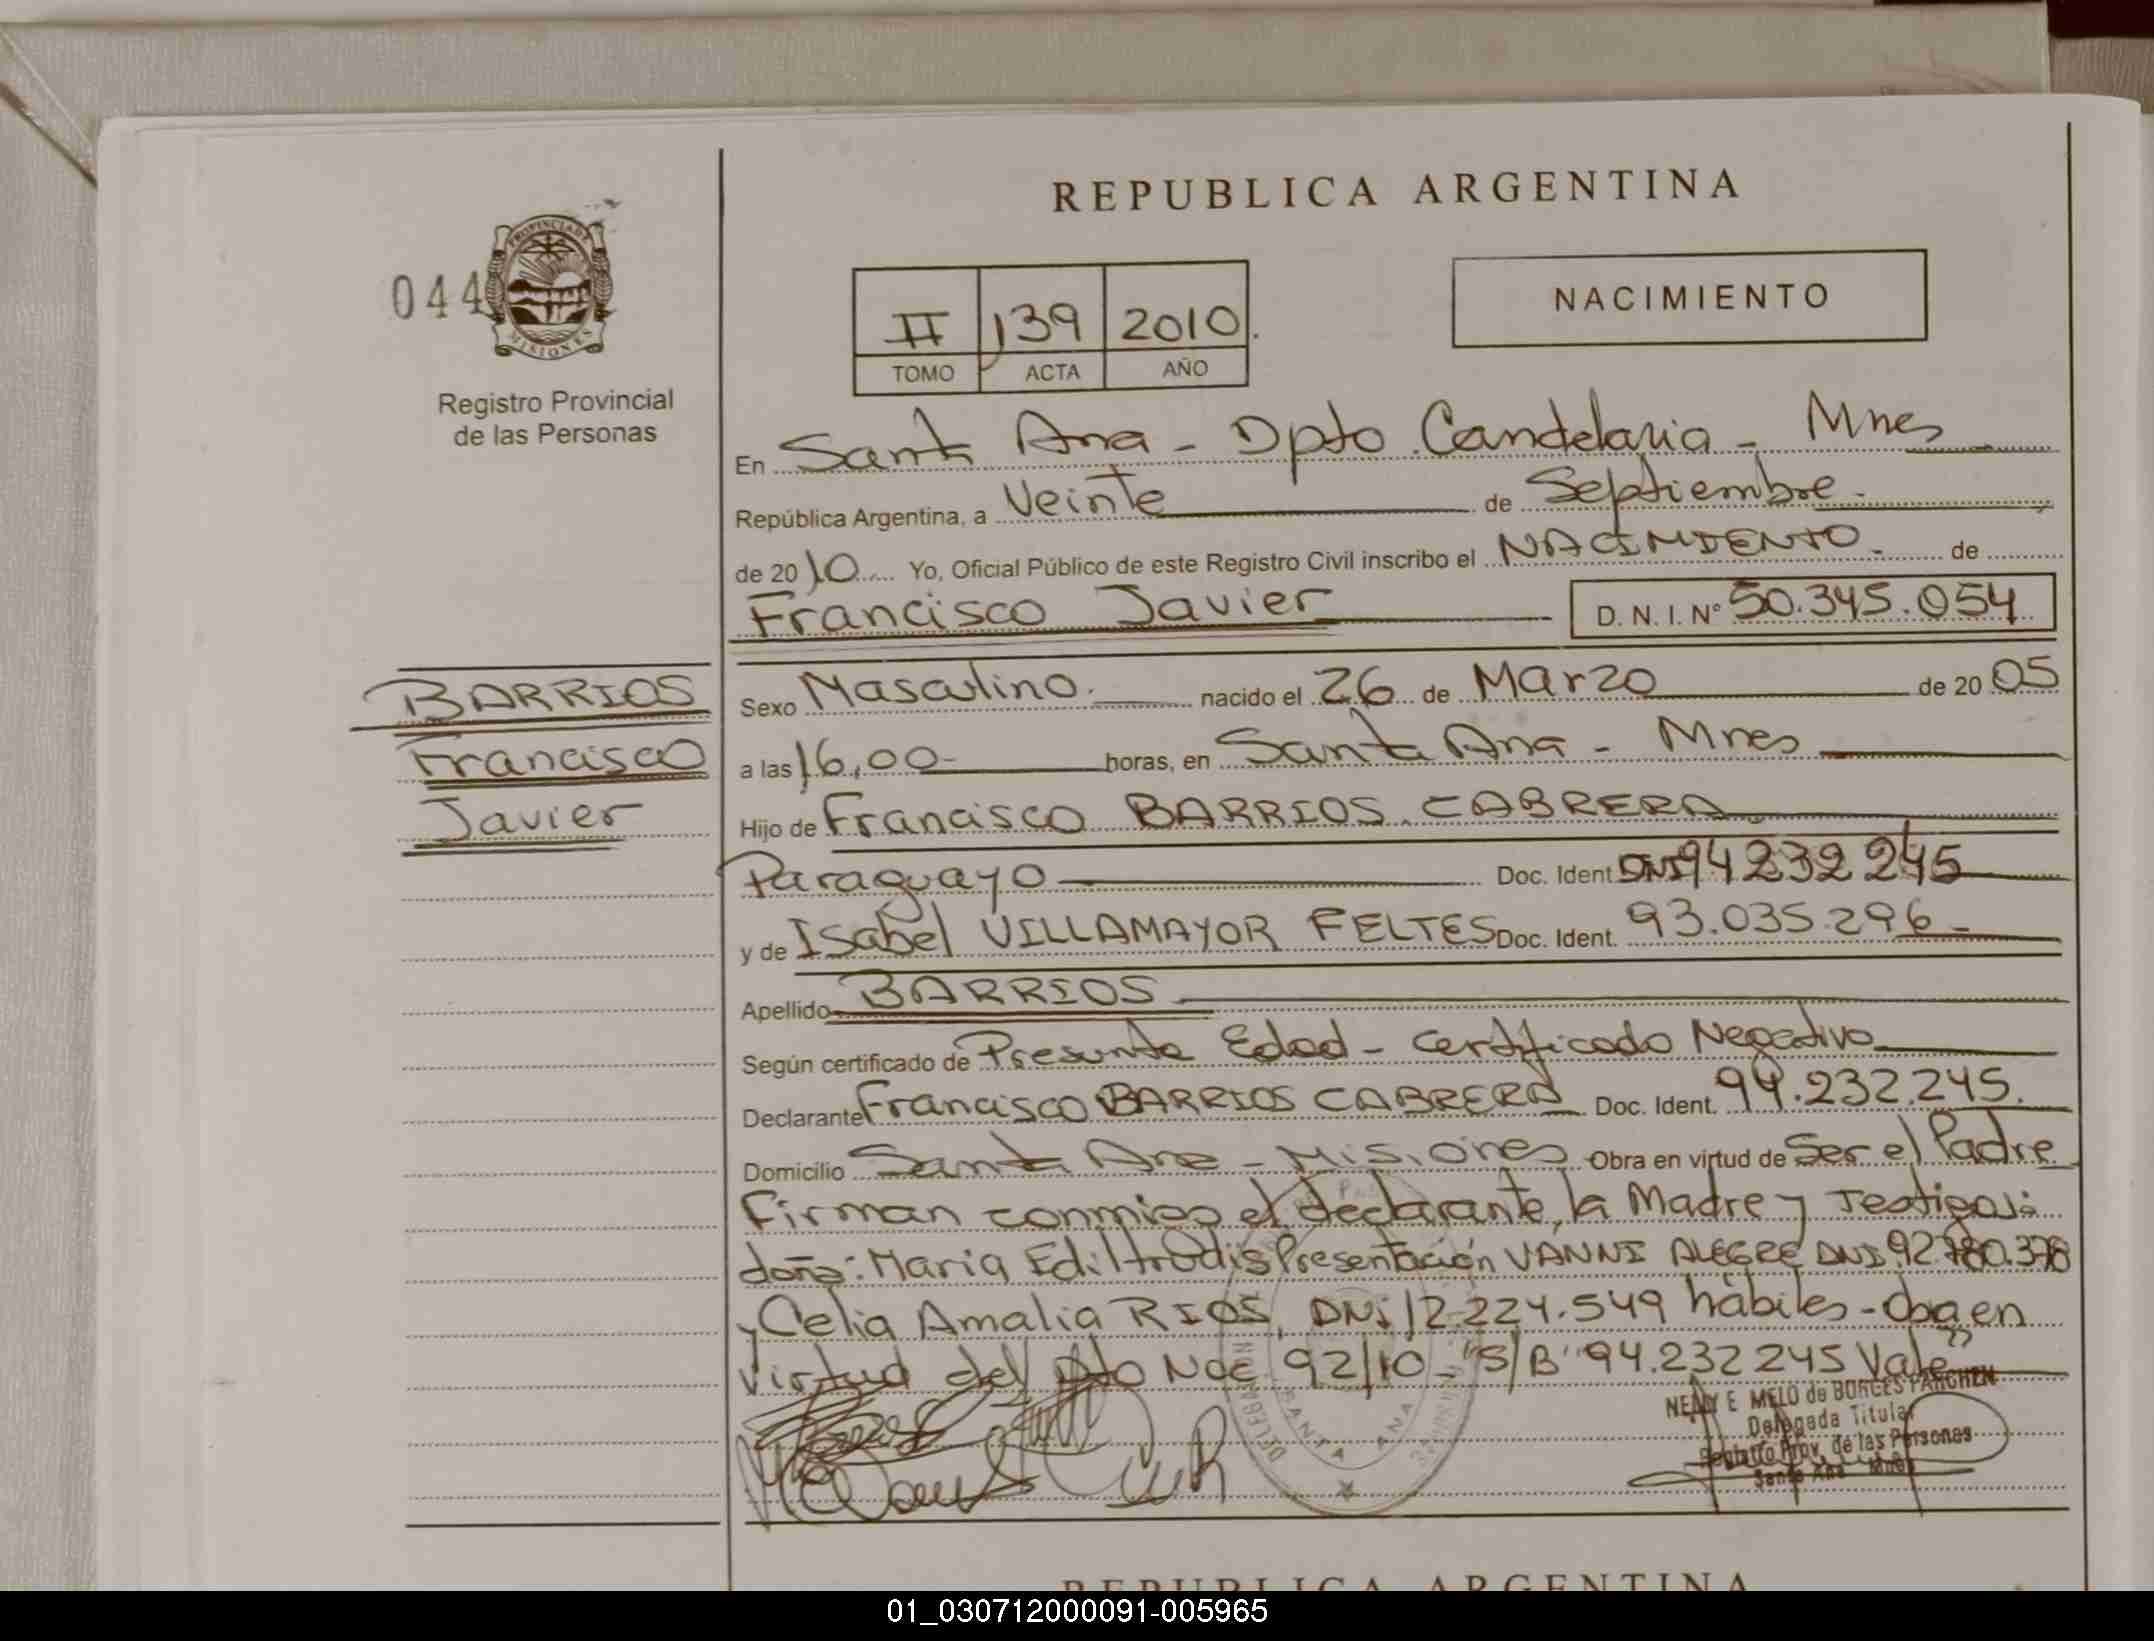 REPUBLICA ARGENTINA
044
PROVINCIA DE
MISIONES
Registro Provincial
de las Personas
II 139 2010.
TOMO ACTA AÑO
NACIMIENTO
En Santa Ana - Dpto Candelaria - Mnes
República Argentina, a Veinte de Septiembre -
de 2010 Yo, Oficial Público de este Registro Civil inscribo el NACIMIENTO. de
Francisco Javier D. N. I. Nº 50.345.054
BARRIOS
Francisco
Javier
Sexo Masculino. nacido el 26 de Marzo de 2005
a las 16,00- horas, en Santa Ana - Mnes
Hijo de Francisco BARRIOS CABRERA
Paraguayo Doc. Ident DNI 94 232 245
y de Isabel VILLAMAYOR FELTES Doc. Ident. 93.035.296-
Apellido BARRIOS
Según certificado de Presunta Edad - Certificado Negativo
Declarante Francisco BARRIOS CABRERA Doc. Ident. 94.232.245.
Domicilio Santa Ana - Misiones Obra en virtud de Ser el Padre
Firman conmigo el declarante, la Madre y Testigos:
doña: Maria Ediltrudis Presentación VANNI ALEGRE DNI 92.780.378
y Celia Amalia RIOS, DNi 12.224.549 hábiles - Oba en
virtud del Dto Nac 92/10 - "S/B" 94.232 245 Vale"
NELLY E. MELO de BORGES PARCHEN
Delegada Titular
Registro Prov. de las Personas
Santa Ana - Mnes
SANTA ANA
REPUBLICA ARGENTINA
01_030712000091-005965